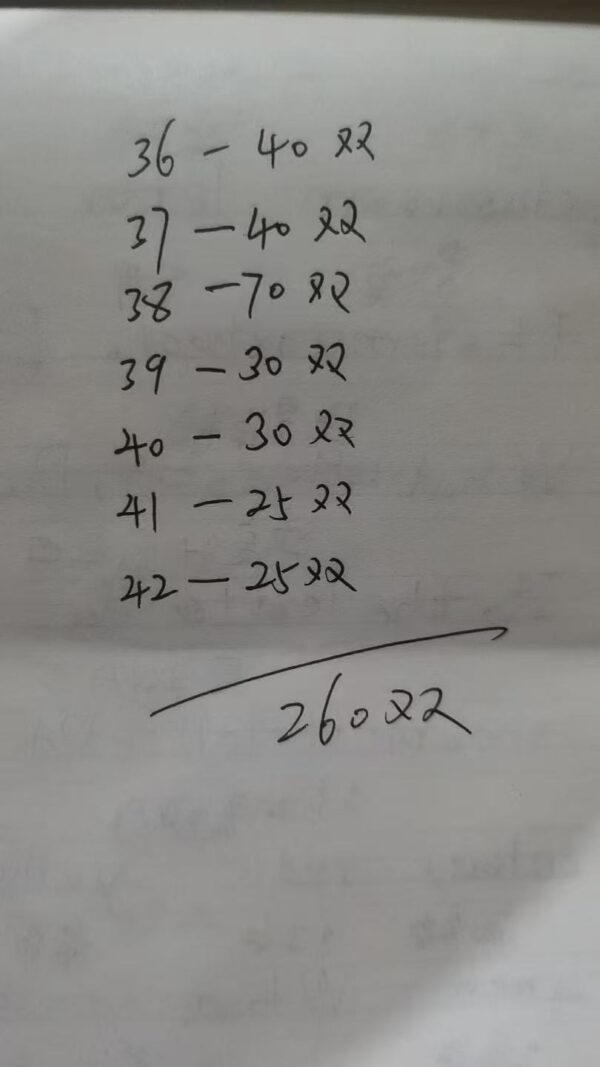 36 - 40 双
37 - 40 双
38 - 70 双
39 - 30 双
40 - 30 双
41 - 25 双
42 - 25 双
260 双